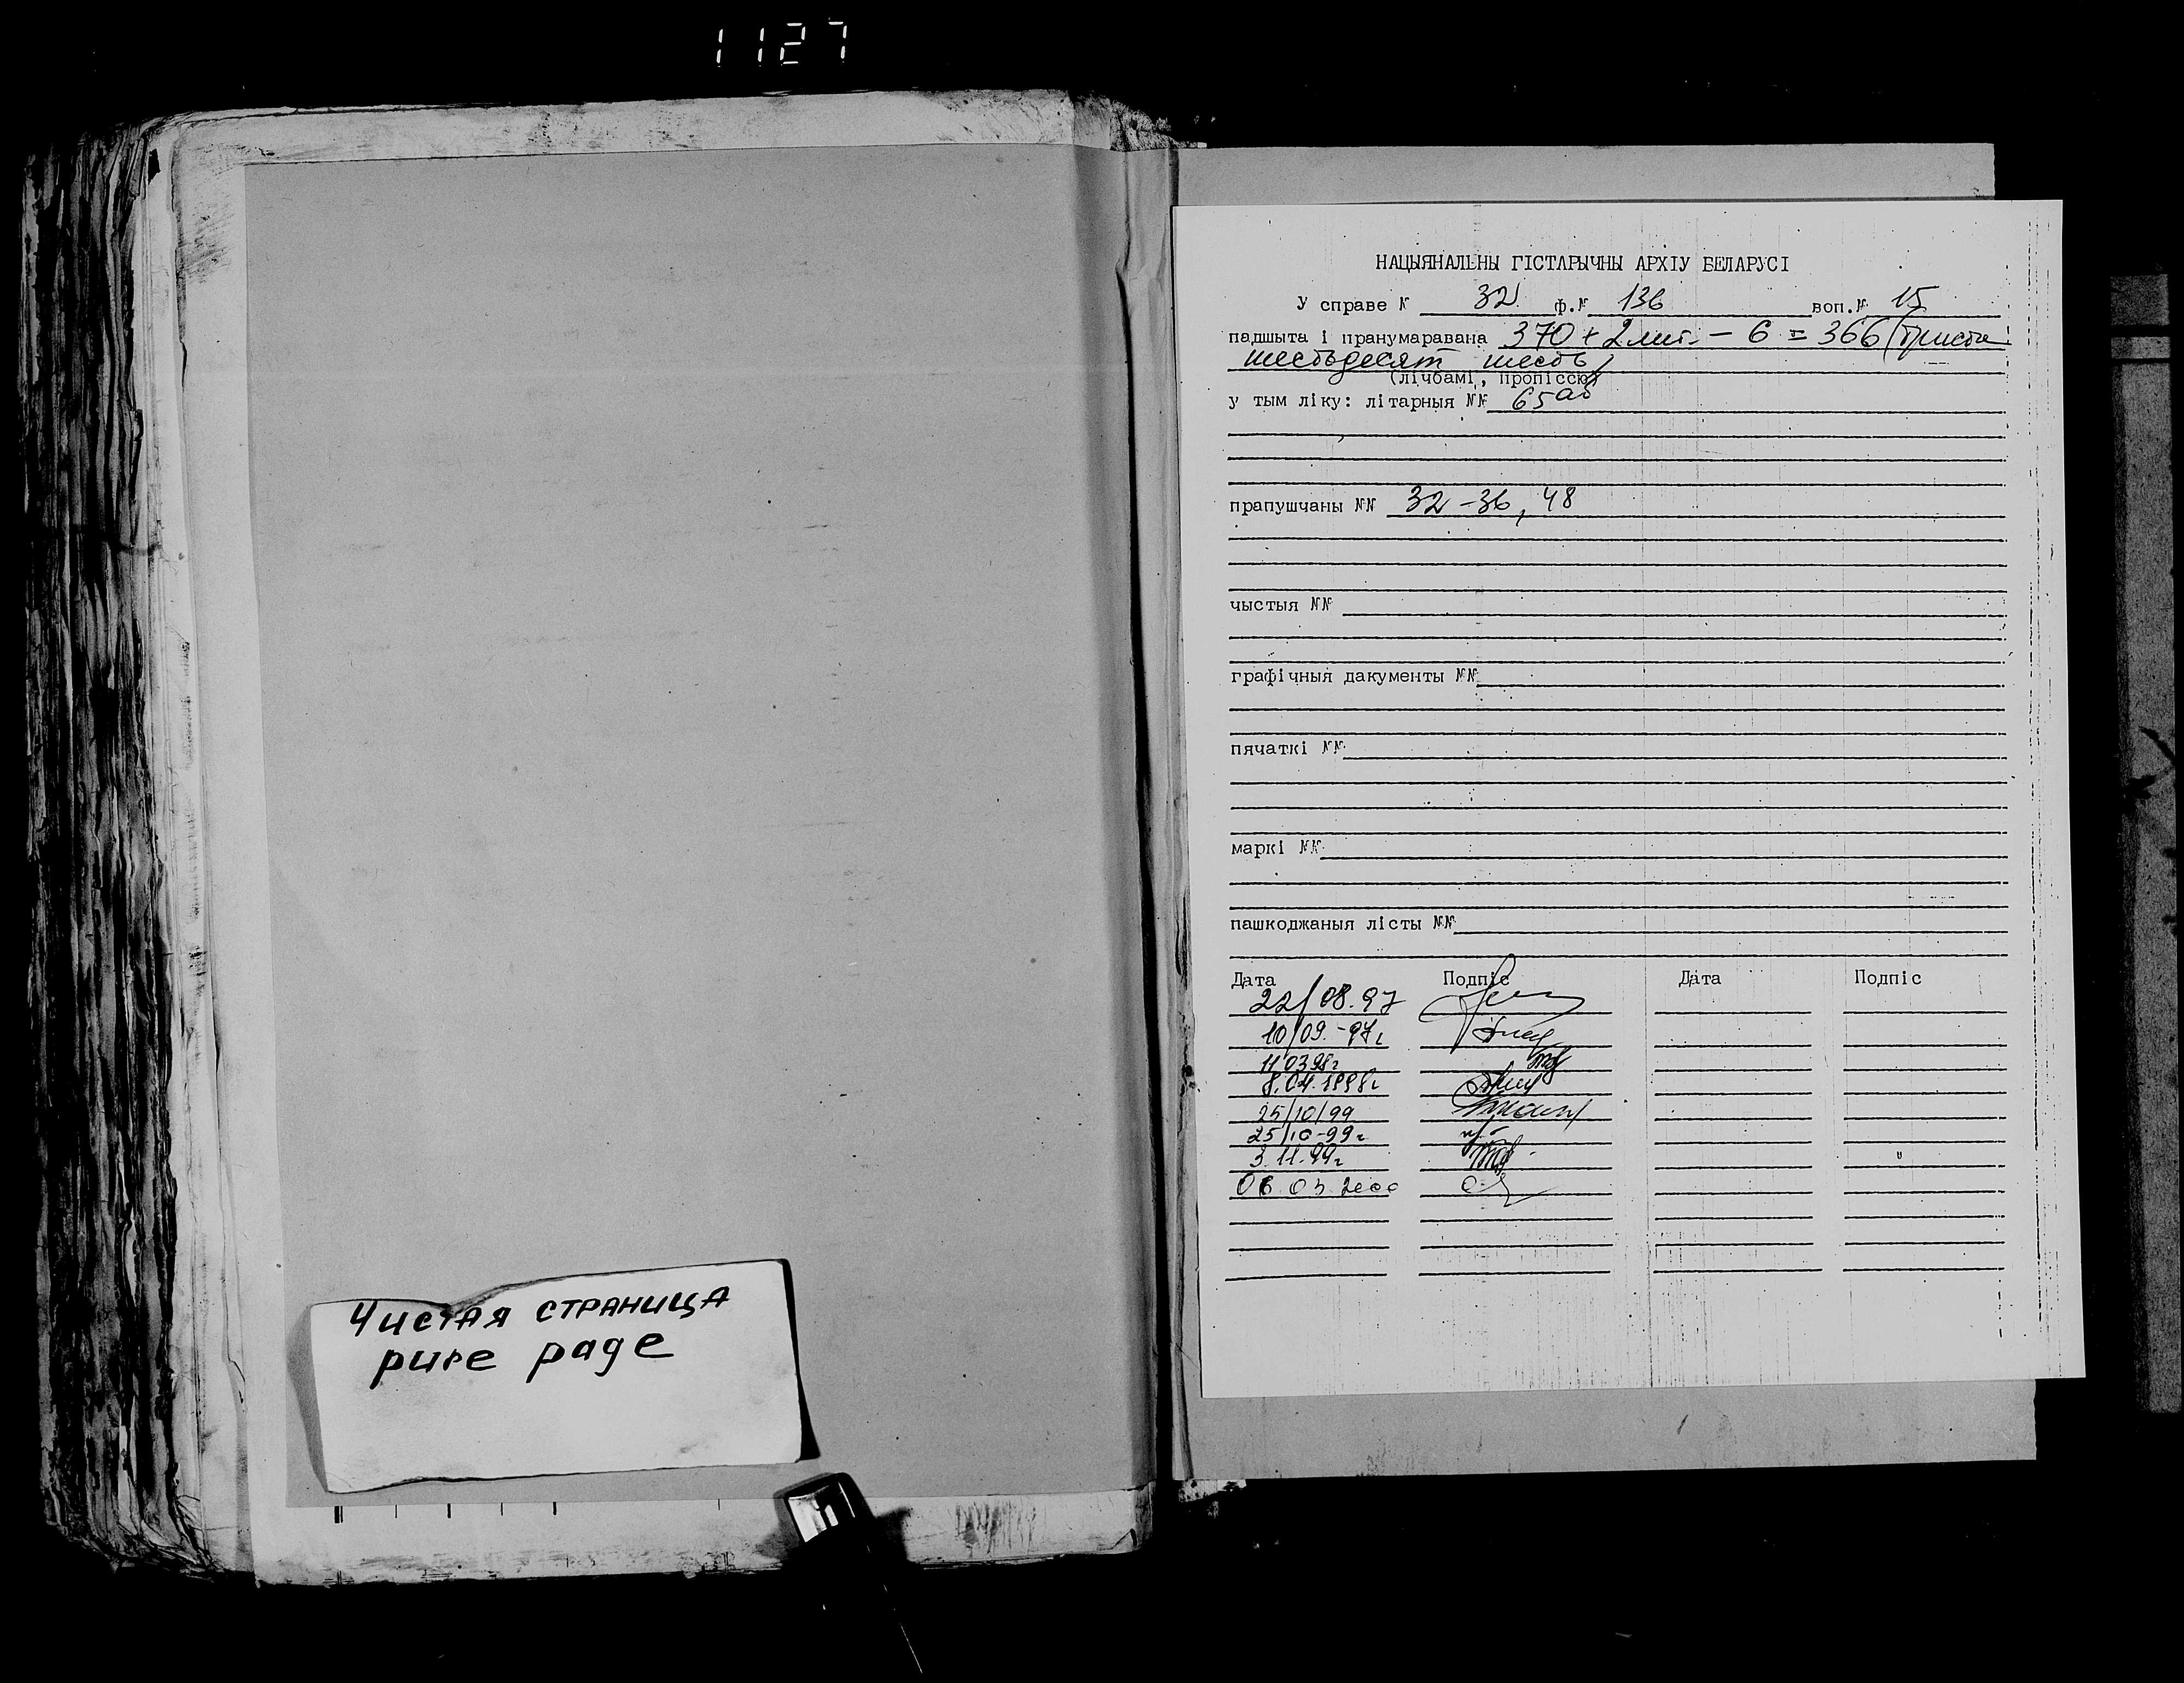 1127
Чистая страница
pure page
НАЦЫЯНАЛЬНЫ ГІСТАРЫЧНЫ АРХІУ БЕЛАРУСІ
У справе № 32 ф.№ 136 воп.№ 15
падшыта і пранумаравана 370 + 2 лит. - 6 = 366 (триста
шестьдесят шесть)
(лічбамі, пропіссю)
у тым ліку: літарныя №№ 65аб
прапушчаны №№ 32-36, 48
чыстыя №№
графічныя дакументы №№
пячаткі №№
маркі №№
пашкоджаныя лісты №№
Дата Подпіс Дата Подпіс
22/08.97
10/09.-97г
11.03.98г
8.04.1998г
25/10/99
25/10-99г
3.11.99г
06.03.2000